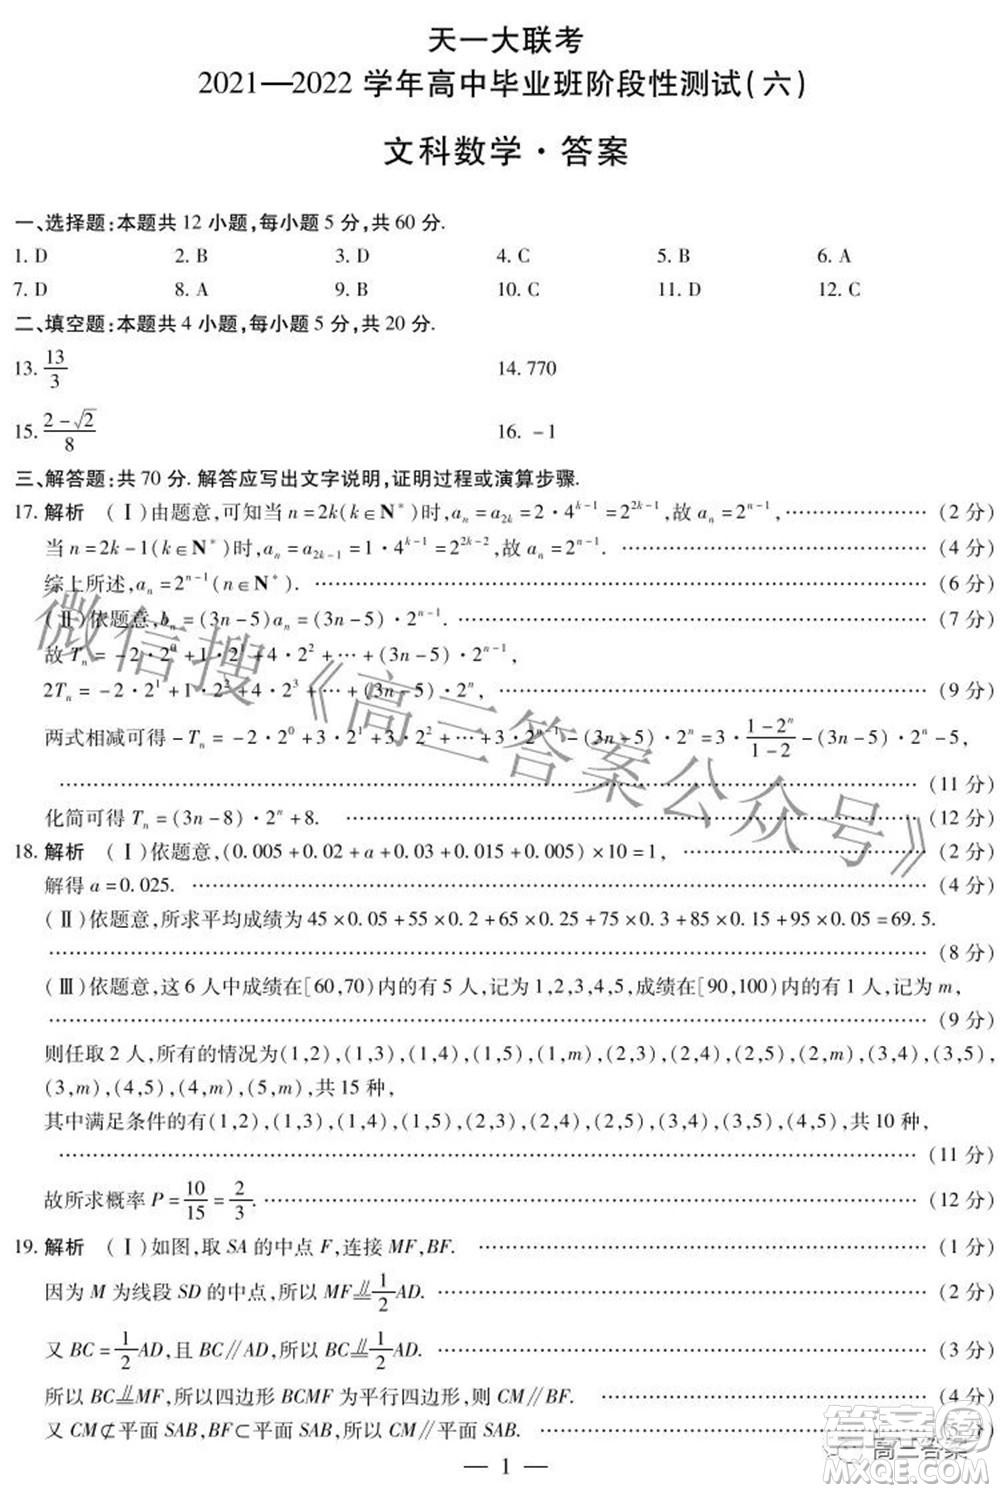 天一大联考
2021—2022 学年高中毕业班阶段性测试(六)
文科数学·答案
一、选择题:本题共 12 小题,每小题 5 分,共 60 分.
1. D 2. B 3. D 4. C 5. B 6. A
7. D 8. A 9. B 10. C 11. D 12. C
二、填空题:本题共 4 小题,每小题 5 分,共 20 分.
13. 13/3 14. 770
15. (2-√2)/8 16. -1
三、解答题:共 70 分. 解答应写出文字说明,证明过程或演算步骤.
17. 解析 (Ⅰ)由题意,可知当 n=2k(k∈N*)时,aₙ=a₂ₖ=2·4^(k-1)=2^(2k-1),故 aₙ=2^(n-1), ……(2 分)
当 n=2k-1(k∈N*)时,aₙ=a₂ₖ₋₁=1·4^(k-1)=2^(2k-2),故 aₙ=2^(n-1). ……(4 分)
综上所述,aₙ=2^(n-1)(n∈N*). ……(6 分)
(Ⅱ)依题意,bₙ=(3n-5)aₙ=(3n-5)·2^(n-1). ……(7 分)
故 Tₙ=-2·2^0+1·2^1+4·2^2+…+(3n-5)·2^(n-1),
2Tₙ=-2·2^1+1·2^2+4·2^3+…+(3n-5)·2^n, ……(9 分)
两式相减可得 -Tₙ=-2·2^0+3·2^1+3·2^2+…+3·2^(n-1)-(3n-5)·2^n=3·(1-2^n)/(1-2)-(3n-5)·2^n-5,
……(11 分)
化简可得 Tₙ=(3n-8)·2^n+8. ……(12 分)
18. 解析 (Ⅰ)依题意,(0.005+0.02+a+0.03+0.015+0.005)×10=1, ……(2 分)
解得 a=0.025. ……(4 分)
(Ⅱ)依题意,所求平均成绩为 45×0.05+55×0.2+65×0.25+75×0.3+85×0.15+95×0.05=69.5.
……(8 分)
(Ⅲ)依题意,这 6 人中成绩在[60,70)内的有 5 人,记为 1,2,3,4,5,成绩在[90,100)内的有 1 人,记为 m,
……(9 分)
则任取 2 人,所有的情况为(1,2),(1,3),(1,4),(1,5),(1,m),(2,3),(2,4),(2,5),(2,m),(3,4),(3,5),
(3,m),(4,5),(4,m),(5,m),共 15 种,
其中满足条件的有(1,2),(1,3),(1,4),(1,5),(2,3),(2,4),(2,5),(3,4),(3,5),(4,5),共 10 种,
……(11 分)
故所求概率 P=10/15=2/3. ……(12 分)
19. 解析 (Ⅰ)如图,取 SA 的中点 F,连接 MF,BF. ……(1 分)
因为 M 为线段 SD 的中点,所以 MF⫽1/2AD. ……(2 分)
又 BC=1/2AD,且 BC∥AD,所以 BC⫽1/2AD. ……(3 分)
所以 BC⫽MF,所以四边形 BCMF 为平行四边形,则 CM∥BF. ……(4 分)
又 CM⊄平面 SAB,BF⊂平面 SAB,所以 CM∥平面 SAB. ……(5 分)
— 1 —
微信搜《高三答案公众号》
高三答案
答案圈
MXQE.COM